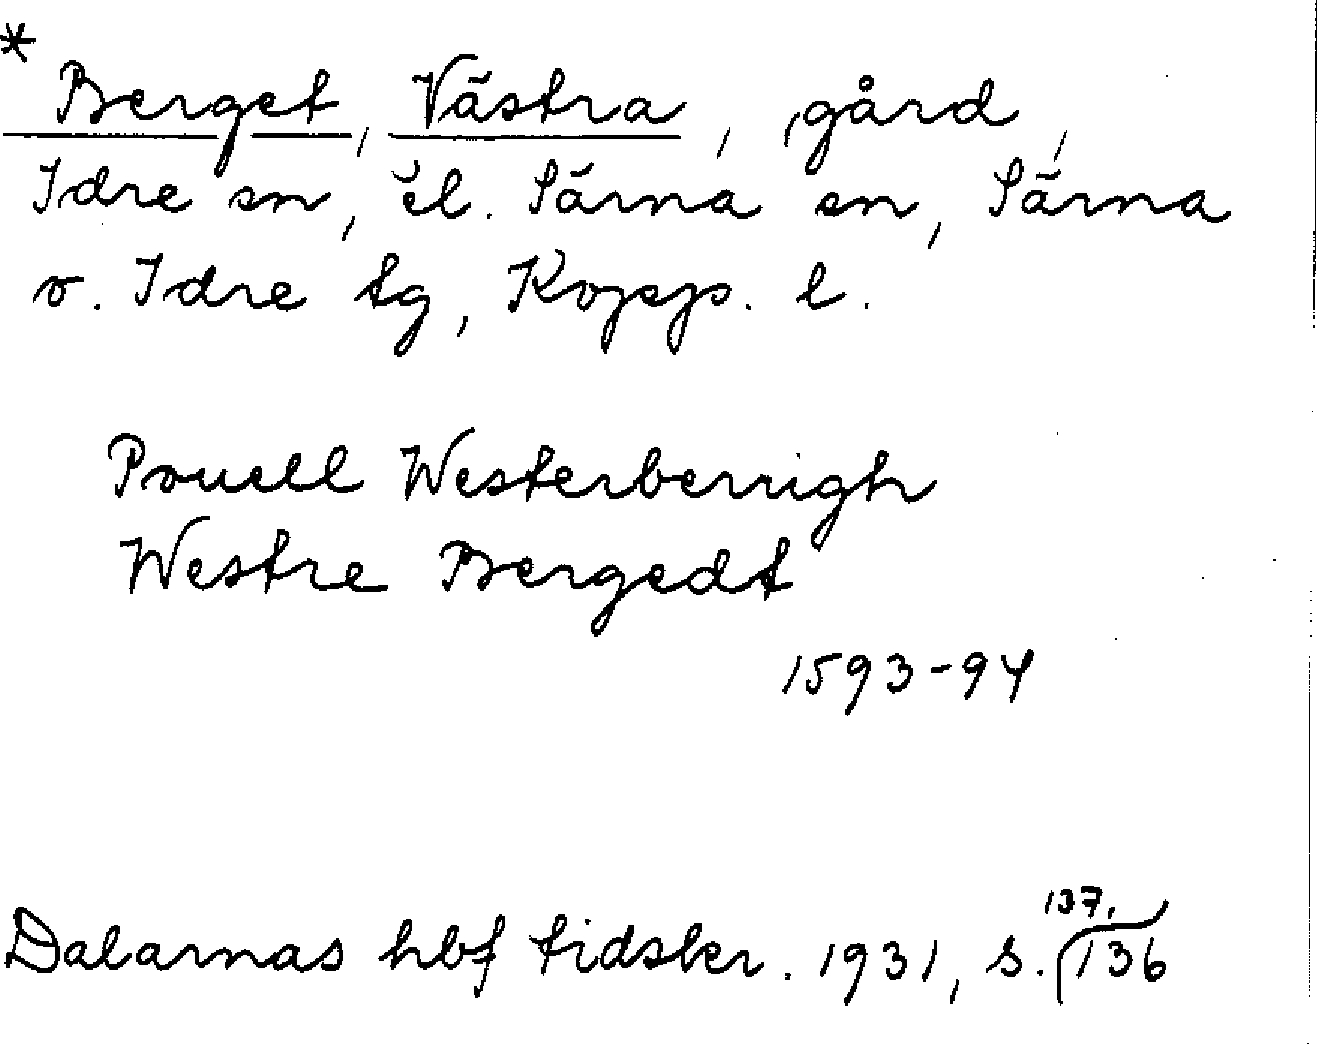 * Berget, Västra, gård,
Idre sn, el. Särna sn, Särna
o. Idre tg, Kopp. l.
Pouell Westerberrigh
Westre Bergedt
1593-94
137,
Dalarnas hbf tidskr. 1931, s. 136